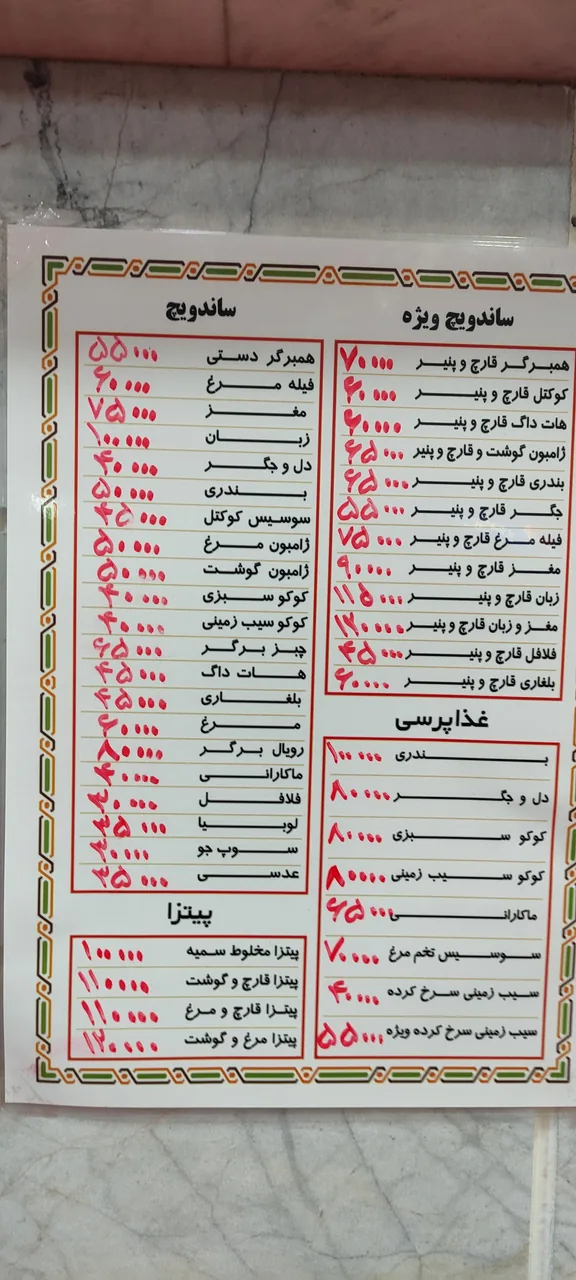 ساندویچ ویژه
همبرگر قارچ و پنیر ۷۰۰۰۰
کوکتل قارچ و پنیر ۶۰۰۰۰
هات داگ قارچ و پنیر ۶۰۰۰۰
ژامبون گوشت و قارچ و پنیر ۶۵۰۰۰
بندری قارچ و پنیر ۶۵۰۰۰
جگر قارچ و پنیر ۵۵۰۰۰
فیله مرغ قارچ و پنیر ۷۵۰۰۰
مغز قارچ و پنیر ۹۰۰۰۰
زبان قارچ و پنیر ۱۱۵۰۰۰
مغز و زبان قارچ و پنیر ۱۲۰۰۰۰
فلافل قارچ و پنیر ۴۵۰۰۰
بلغاری قارچ و پنیر ۶۰۰۰۰
غذاپرسی
بندری ۱۰۰۰۰۰
دل و جگر ۸۰۰۰۰
کوکو سبزی ۸۰۰۰۰
کوکو سیب زمینی ۸۰۰۰۰
ماکارانی ۶۵۰۰۰
سوسیس تخم مرغ ۷۰۰۰۰
سیب زمینی سرخ کرده ۴۰۰۰۰
سیب زمینی سرخ کرده ویژه ۵۵۰۰۰
ساندویچ
همبرگر دستی ۵۵۰۰۰
فیله مرغ ۶۰۰۰۰
مغز ۷۵۰۰۰
زبان ۱۰۰۰۰۰
دل و جگر ۴۰۰۰۰
بندری ۵۰۰۰۰
سوسیس کوکتل ۴۵۰۰۰
ژامبون مرغ ۵۰۰۰۰
ژامبون گوشت ۵۰۰۰۰
کوکو سبزی ۴۰۰۰۰
کوکو سیب زمینی ۴۰۰۰۰
چیز برگر ۶۵۰۰۰
هات داگ ۴۵۰۰۰
بلغاری ۴۵۰۰۰
مرغ ۶۰۰۰۰
رویال برگر ۸۰۰۰۰
ماکارانی
فلافل
لوبیا
سوپ جو
عدسی
پیتزا
پیتزا مخلوط سمیه ۱۰۰۰۰۰
پیتزا قارچ و گوشت ۱۱۰۰۰۰
پیتزا قارچ و مرغ ۱۱۰۰۰۰
پیتزا مرغ و گوشت ۱۲۰۰۰۰